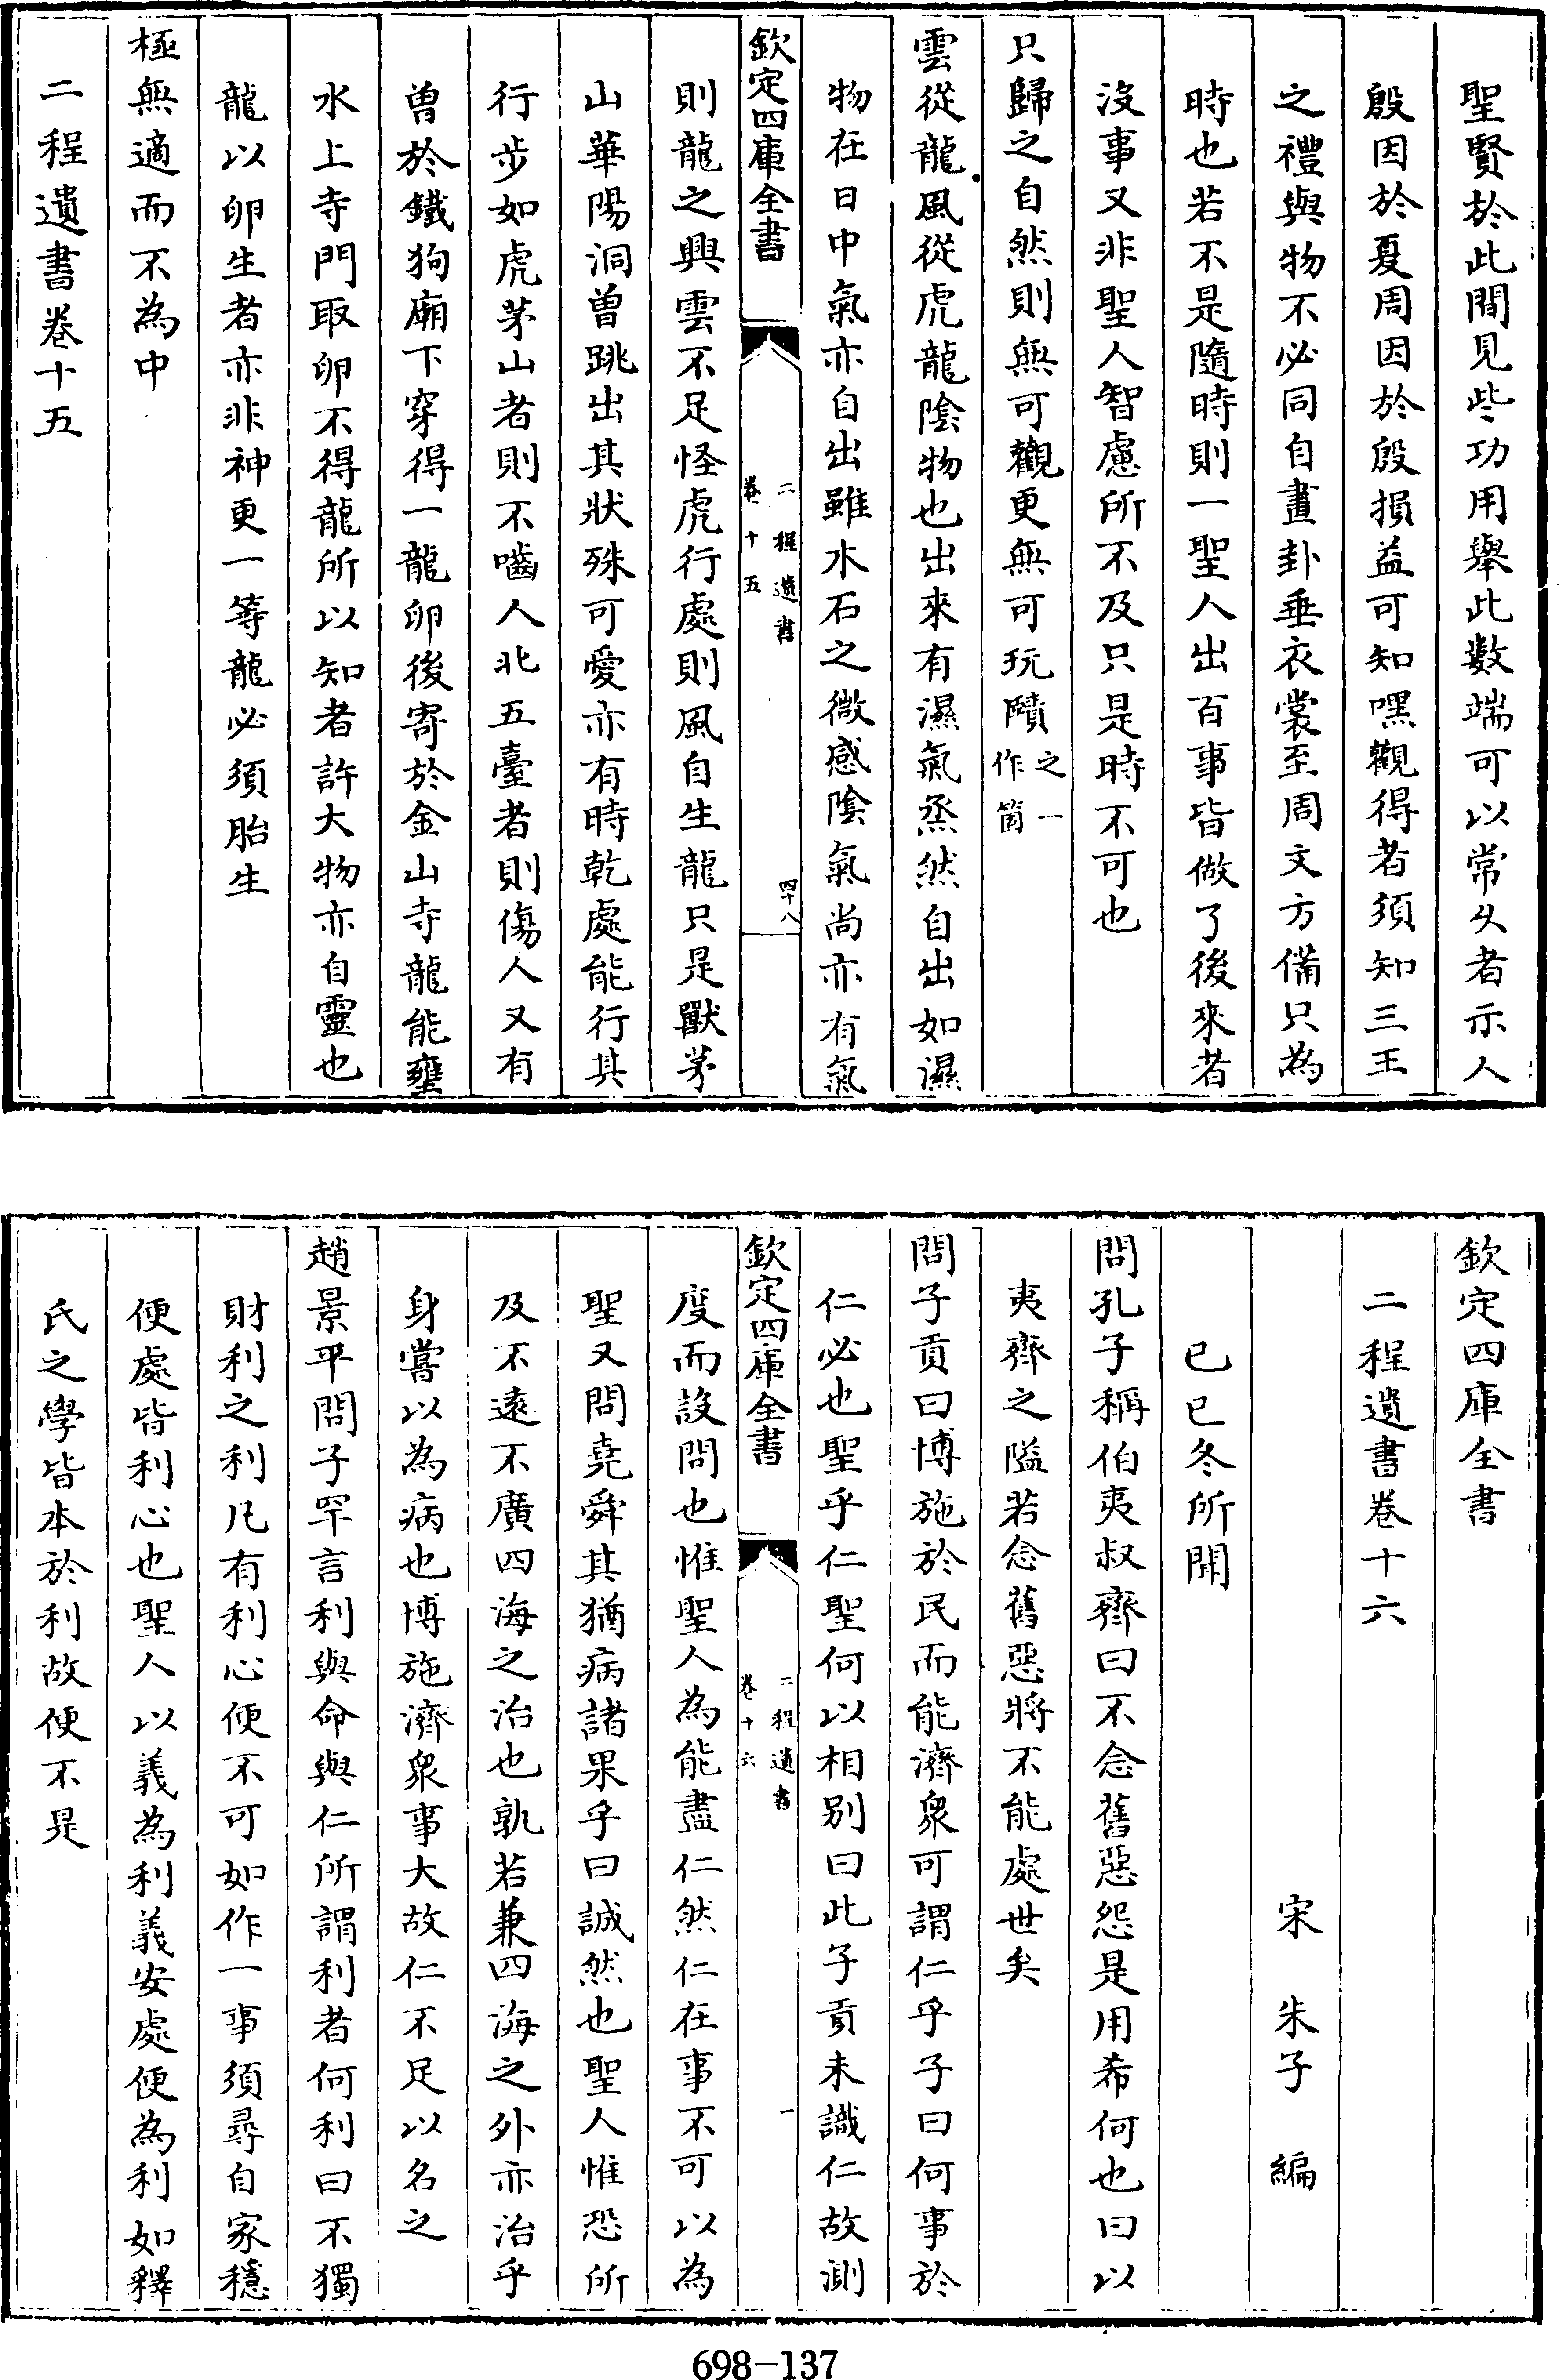 聖賢於此間見些功用舉此數端可以常久者示人
殷因於夏周因於殷損益可知嘿觀得者須知三王
之禮與物不必同自畫卦垂衣裳至周文方備只為
時也若不是隨時則一聖人出百事皆做了後來者
沒事又非聖人智慮所不及只是時不可也
只歸之自然則無可觀更無可玩賾之一作箇
雲從龍風從虎龍陰物也出來有濕氣烝然自出如濕
物在日中氣亦自出雖木石之微感陰氣尚亦有氣
欽定四庫全書
二程遺書
卷十五
四十八
則龍之興雲不足怪虎行處則風自生龍只是獸茅
山華陽洞曾跳出其狀殊可愛亦有時乾處能行其
行步如虎茅山者則不嚙人北五臺者則傷人又有
曾於鐵狗廟下穿得一龍卵後寄於金山寺龍能壅
水上寺門取卵不得龍所以知者許大物亦自靈也
龍以卵生者亦非神更一等龍必須胎生
極無適而不為中
二程遺書卷十五
欽定四庫全書
二程遺書卷十六
宋 朱子 編
已巳冬所聞
問孔子稱伯夷叔齊曰不念舊惡怨是用希何也曰以
夷齊之隘若念舊惡將不能處世矣
問子貢曰博施於民而能濟衆可謂仁乎子曰何事於
仁必也聖乎仁聖何以相别曰此子貢未識仁故測
欽定四庫全書
二程遺書
卷十六
一
度而設問也惟聖人為能盡仁然仁在事不可以為
聖又問堯舜其猶病諸果乎曰誠然也聖人惟恐所
及不遠不廣四海之治也孰若兼四海之外亦治乎
身嘗以為病也博施濟衆事大故仁不足以名之
趙景平問子罕言利與命與仁所謂利者何利曰不獨
財利之利凡有利心便不可如作一事須尋自家穩
便處皆利心也聖人以義為利義安處便為利如釋
氏之學皆本於利故便不是
698-137